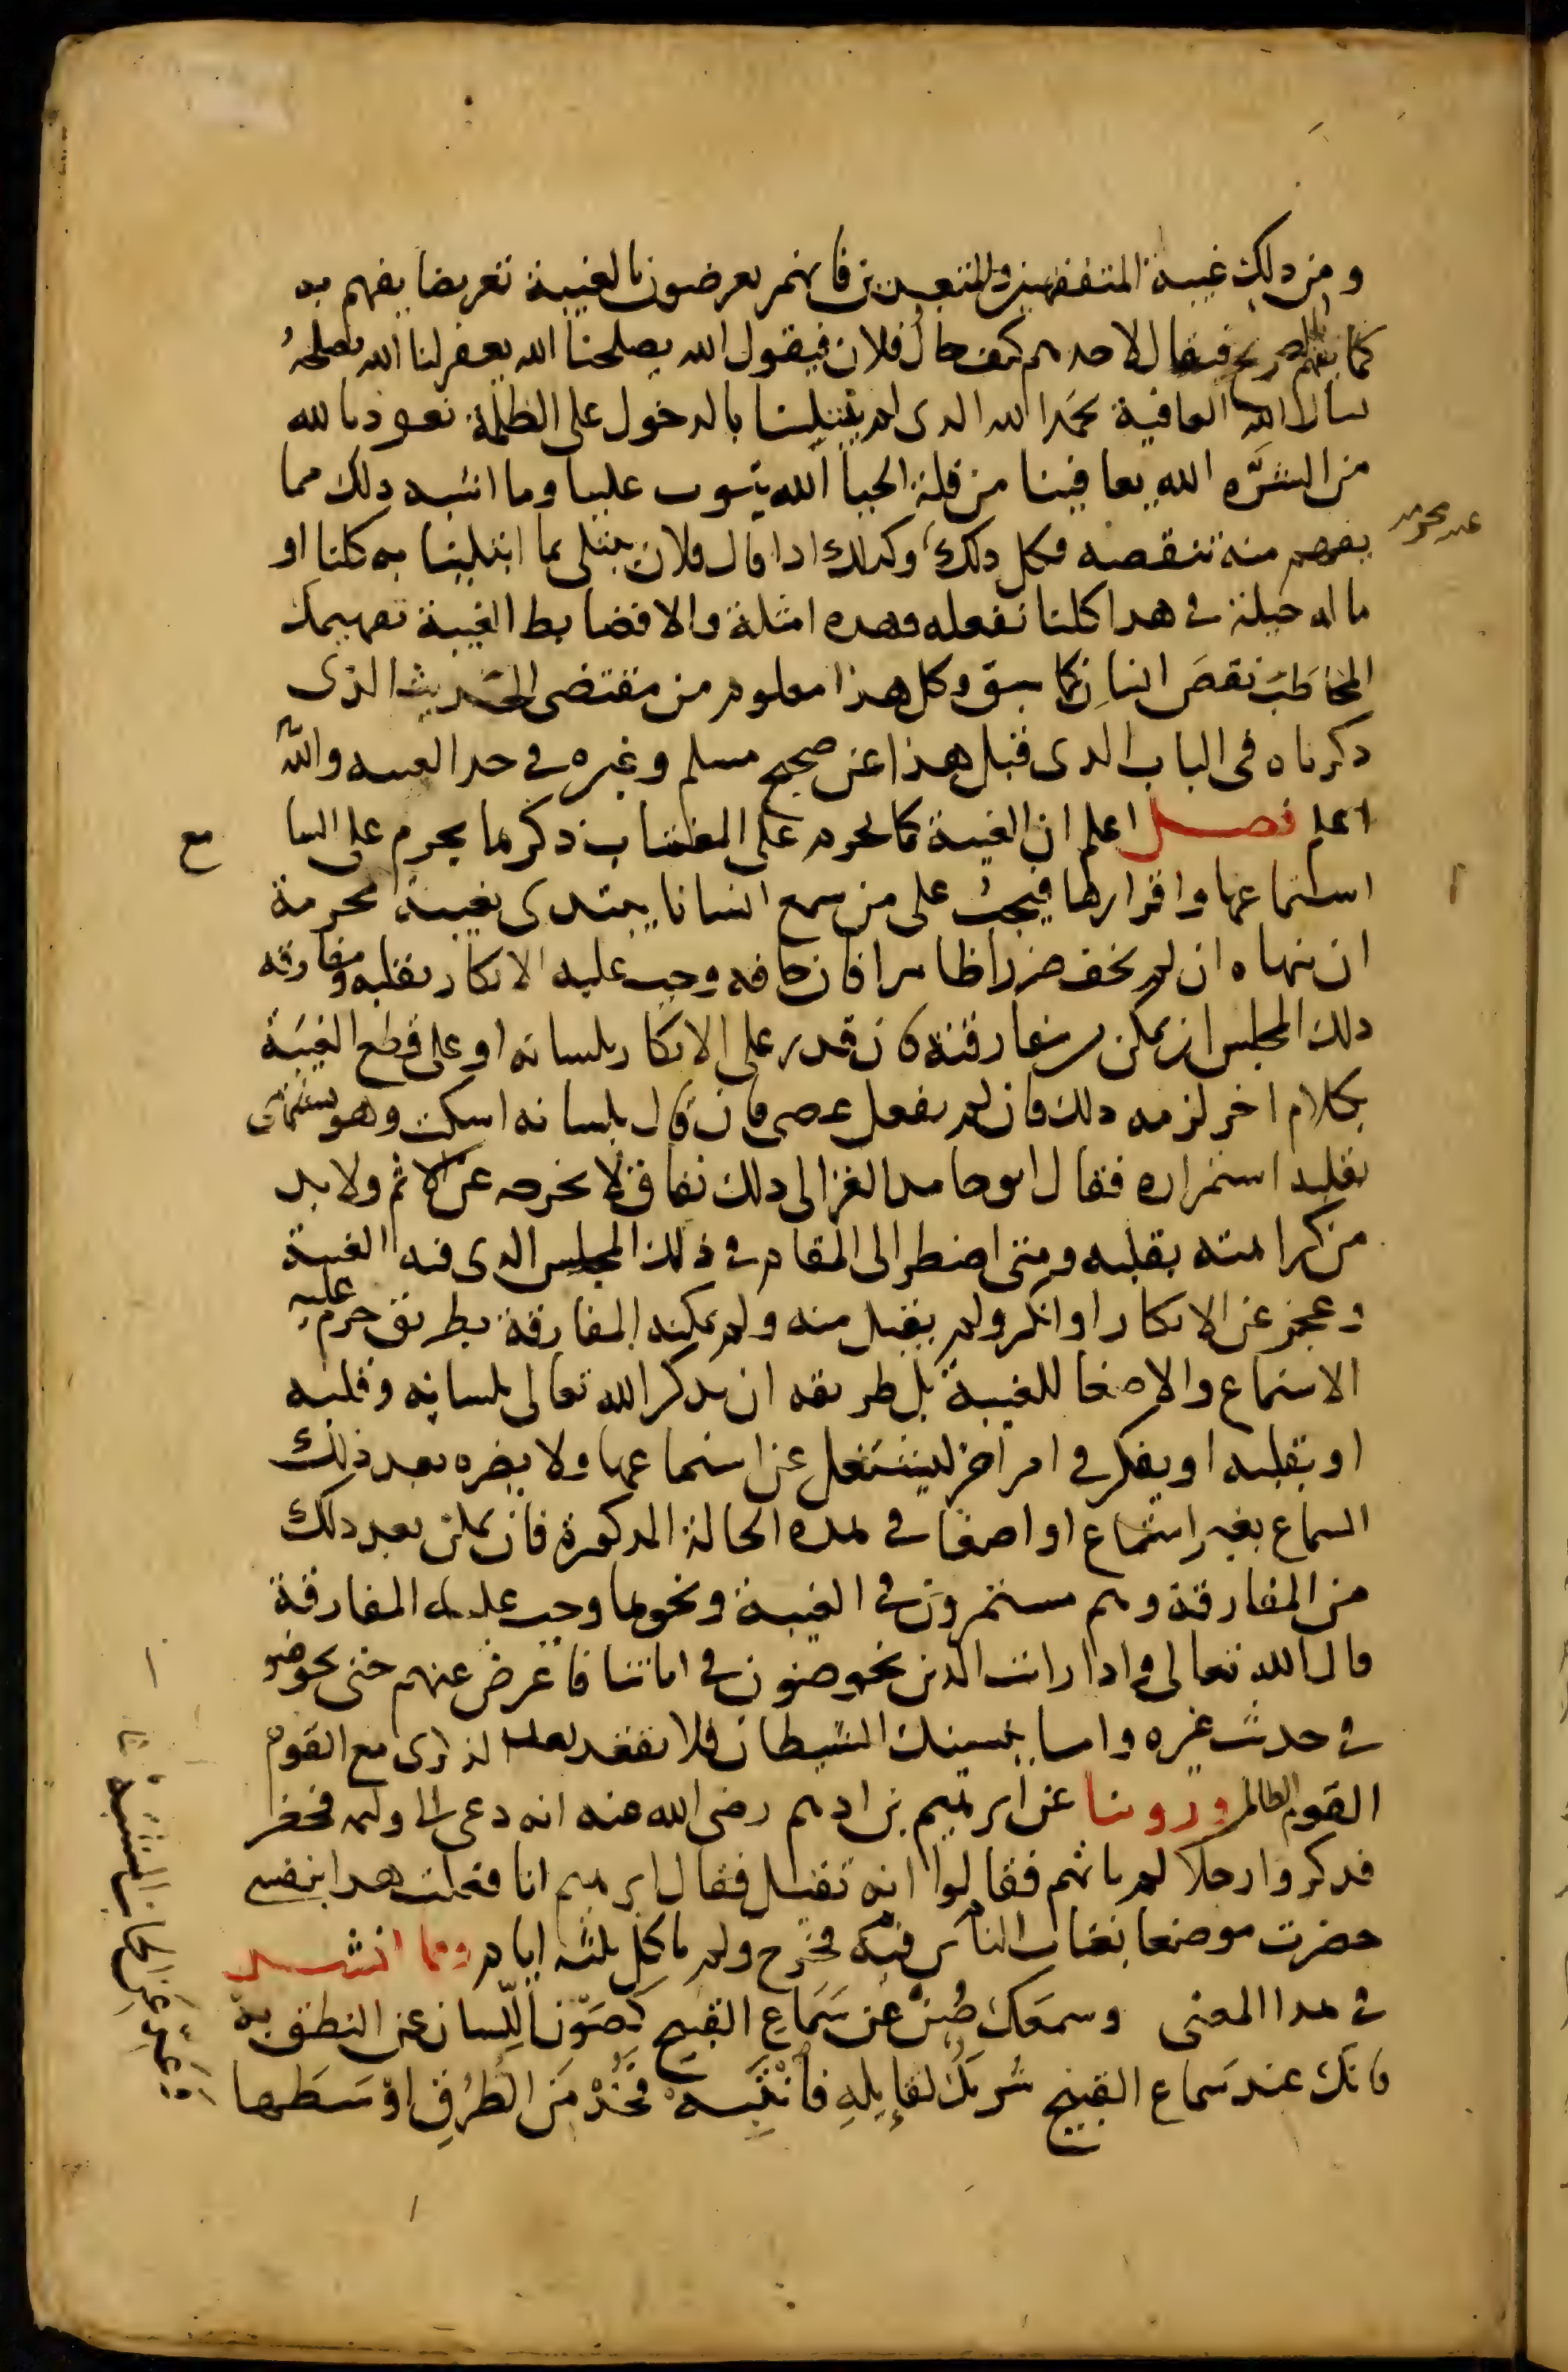 ومن ذلك غيبة المتفقهين والمتعبدين فانهم يعرضون بالغيبة تعريضا يفهم به
كما يفهم بالصريح فيقال لاحدهم كيف حال فلان فيقول الله يصلحنا الله يغفر لنا الله يصلحهُ
نسال الله العافية نحمد الله الذى لم يبتلينا بالدخول على الظلمة نعوذ بالله
من الشرّه الله يعافينا من قلة الحيا الله يتوب علينا وما اشبه ذلك مما
يفهم منه تنقصه فكل ذلك وكذلك اذا قال فلان يبتلى بما ابتلينا به كلنا او
ماله حيلة فى هذا كلنا نفعله وهذه امثلة والا فضابط الغيبة تفهيمك
المخاطَب نقصَ انسانٍ كما سبق وكل هذا معلوم من مقتضى الحديث الذى
ذكرناه فى الباب الذى قبل هذا عن صحيح مسلم وغيره فى حد الغيبه والله
اعلم فصل اعلم ان الغيبة كما يحرم على المغتاب ذكرها يحرم على السا مع
استماعها واقرارها فيجبُ على من سمع انسانا يبتدى بغيبة محرمة
ان ينهاه ان لم يخف ضررا ظاهرا فان خافه وجب عليه الانكار بقلبه ومفارقه
ذلك المجلس ان تمكن من مفارقته فان قدر على الانكار بلسانه او على قطع الغيبَة
بكلام اخر لزمه ذلك فان لم يفعل عصى فان قال بلسانه اسكت وهو يشتهى
بقلبه استمراره فقال ابو حامد الغزالى ذلك نفاق لا يخرجه عن الاثم ولا بد
من كراهته بقلبه ومتى اضطر الى المقام فى ذلك المجلس الذى فيه الغيبة
وعجز عن الانكار او انكر ولم يقبل منه ولم يمكنه المفارقة بطريق حرم عليه
الاستماع والاصغا للغيبة بل طريقه ان يذكر الله تعالى بلسانه وقلبه
او بقلبه او يفكر فى امر اخر ليشتغل عن استماعها ولا يضره بعد ذلك
السماع بغير استماع او اصغا فى هذه الحالة المذكورة فان تمكن بعد ذلك
من المفارقة وهم مستمرون فى الغيبة ونحوها وجب عليه المفارقة
قال الله تعالى واذا رايت الذين يخوضون فى اياتنا فاعرض عنهم حتى يخوضو
فى حديث غيره واما ينسينك الشيطان فلا تقعد بعد الذكرى مع القوم
القوم الظالم وروينا عن ابرهيم بن ادهم رضى الله عنه انه دعى الى وليمه فحضر
فذكروا رجلا لم ياتهم فقالوا انه ثقيل فقال ابرهيم انا فعلت هذا بنفسى
حضرت موضعا يغتاب الناس فيه فخرج ولم ياكل ثلثه ايام ومما انشد
فى هذا المعنى وسمعَك صُنْ عن سَمَاعِ القبيح كَصَوْنِ اللّسان عن النطق به
فانك عند سَماع القبيح شريكٌ لقايلِه فانْتَبِهْ فخُذْ مَن الطُرقِ اوْسَطها